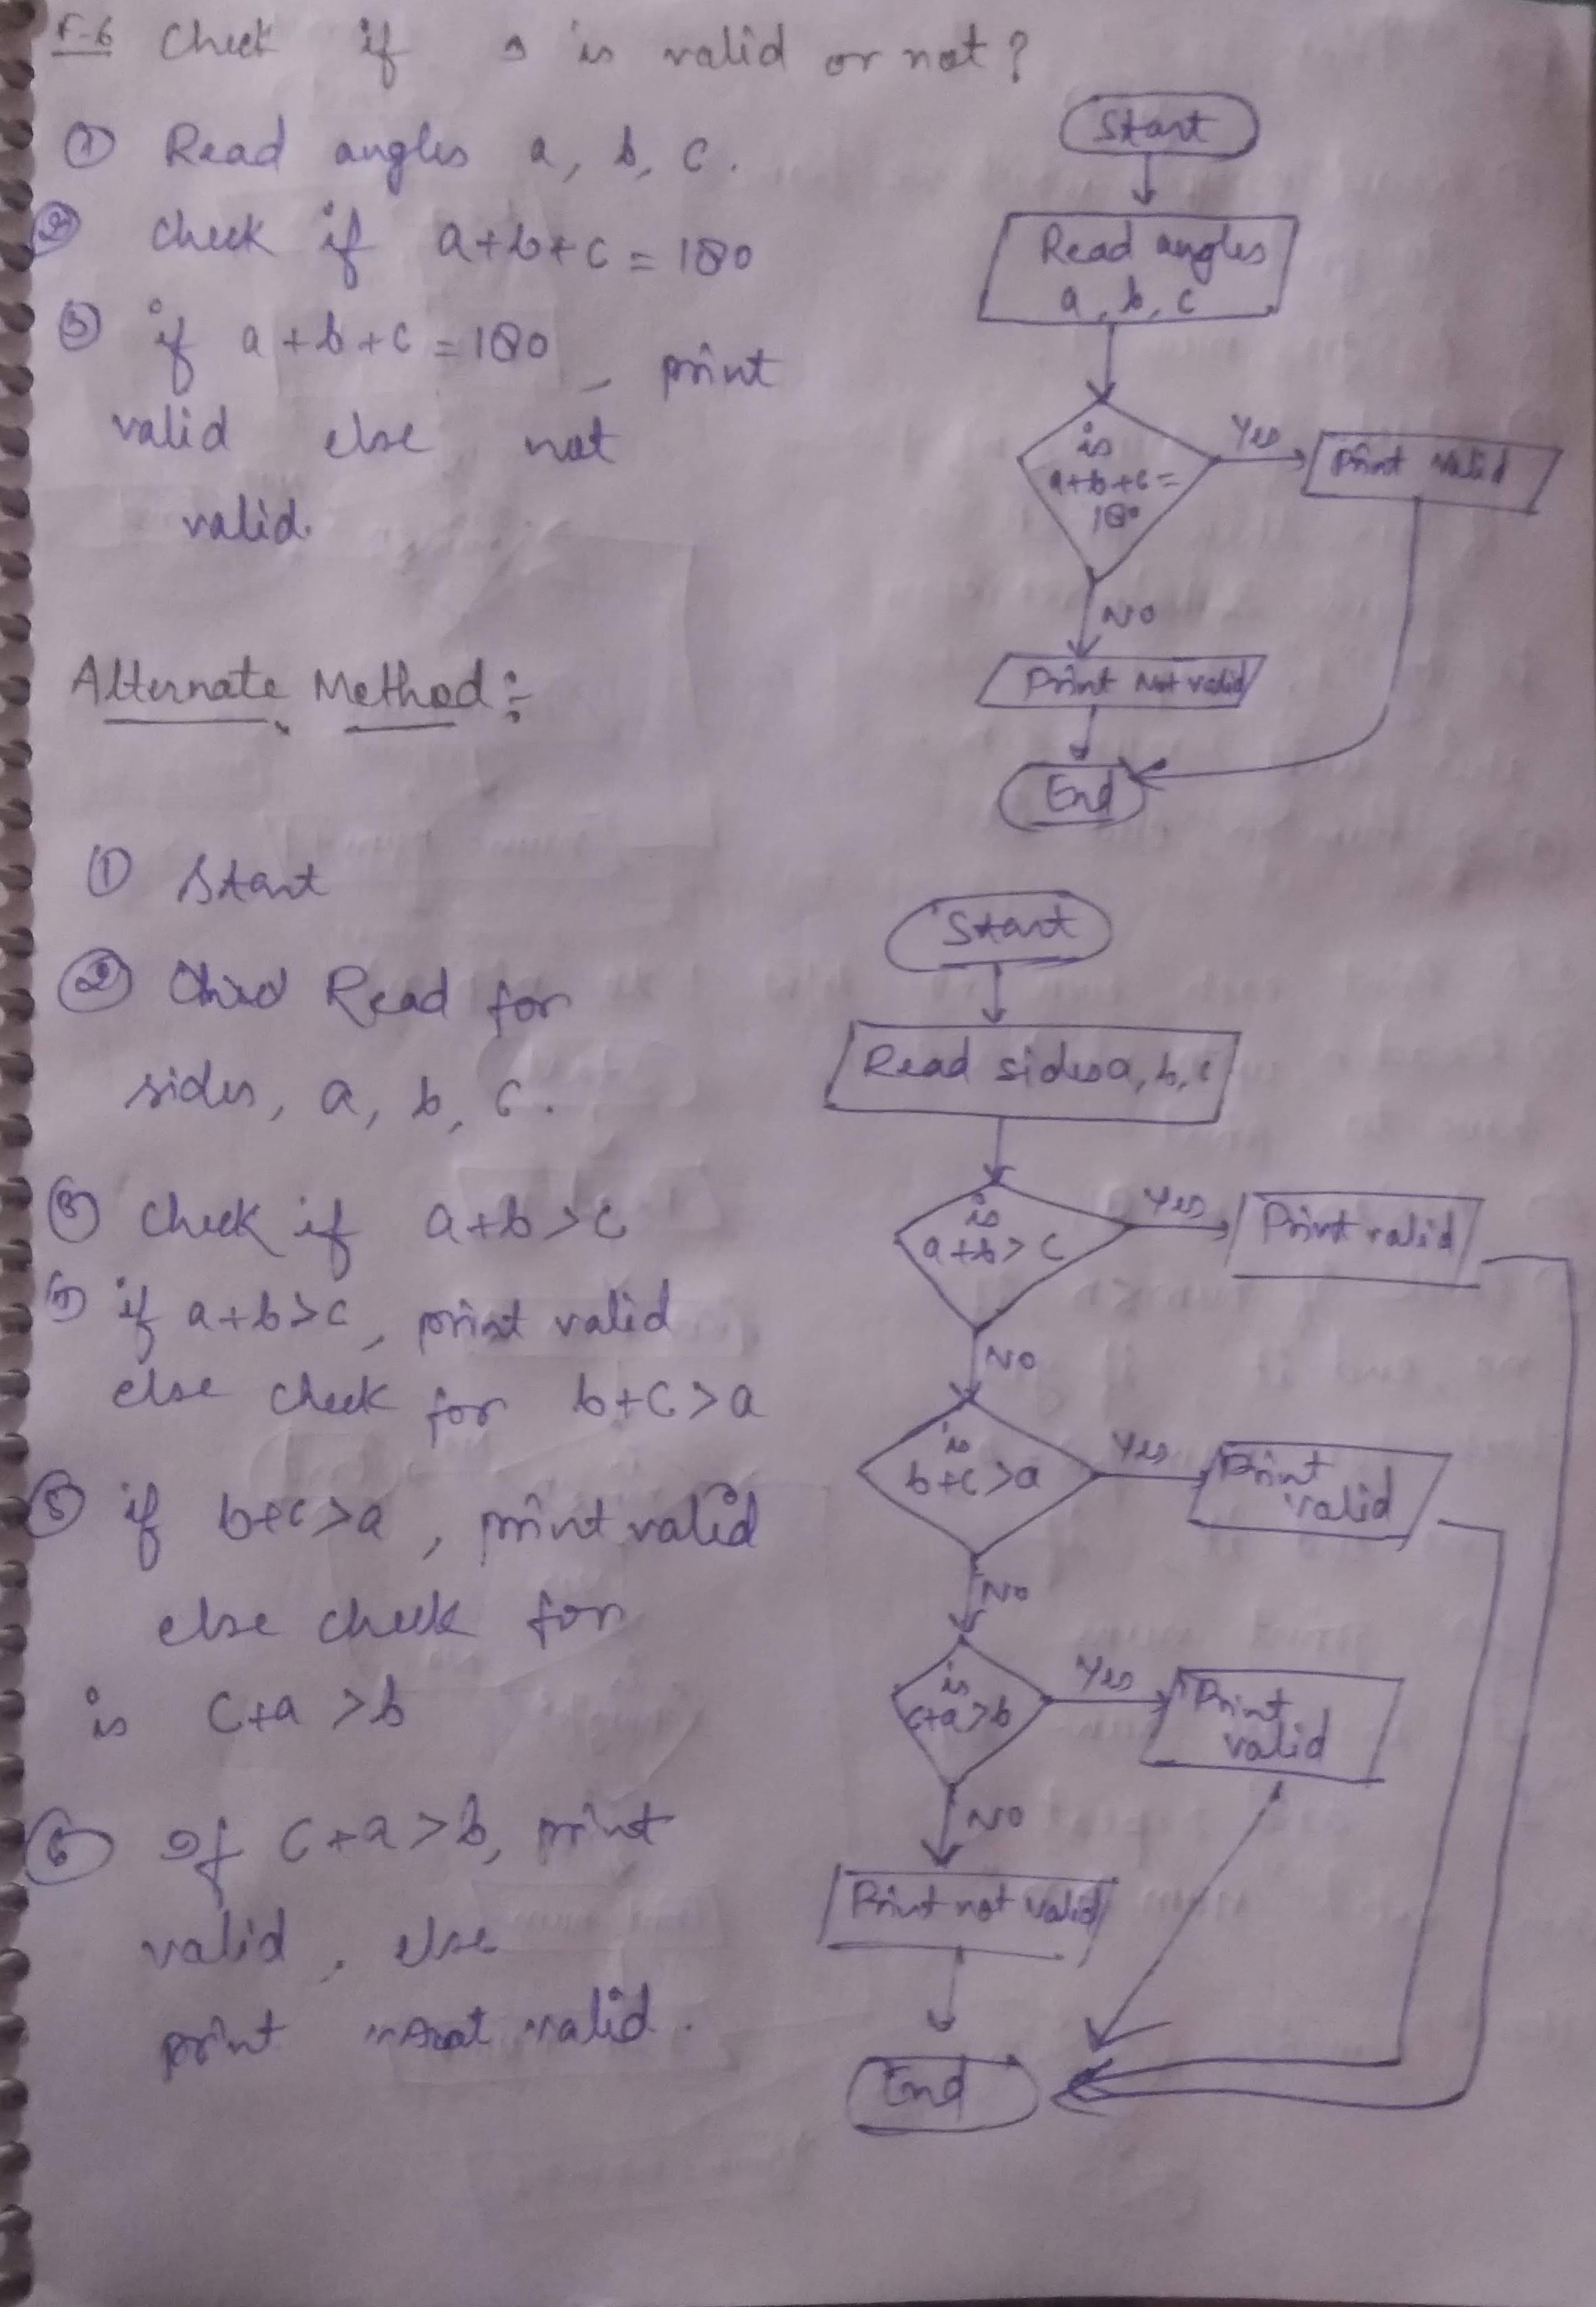 F-6 Check if is valid or not?
① Read angles a, b, c.
② check if a+b+c = 180
③ if a+b+c = 180, print
valid else not
valid.
Start
Read angles
a, b, c
is
a+b+c =
180
Yes
Print valid
NO
Print Not valid
End
Alternate Method :-
① Start
② Read for
sides, a, b, c.
③ Check if a+b>c
④ if a+b>c, print valid
else check for b+c>a
⑤ if b+c>a, print valid
else check for
is c+a >b
⑥ If c+a>b, print
valid, else
print not valid.
Start
Read sides a, b, c
is
a+b> c
Yes
Print valid
NO
is
b+c>a
Yes
Print
valid
NO
is
c+a>b
Yes
Print
valid
NO
Print not valid
End